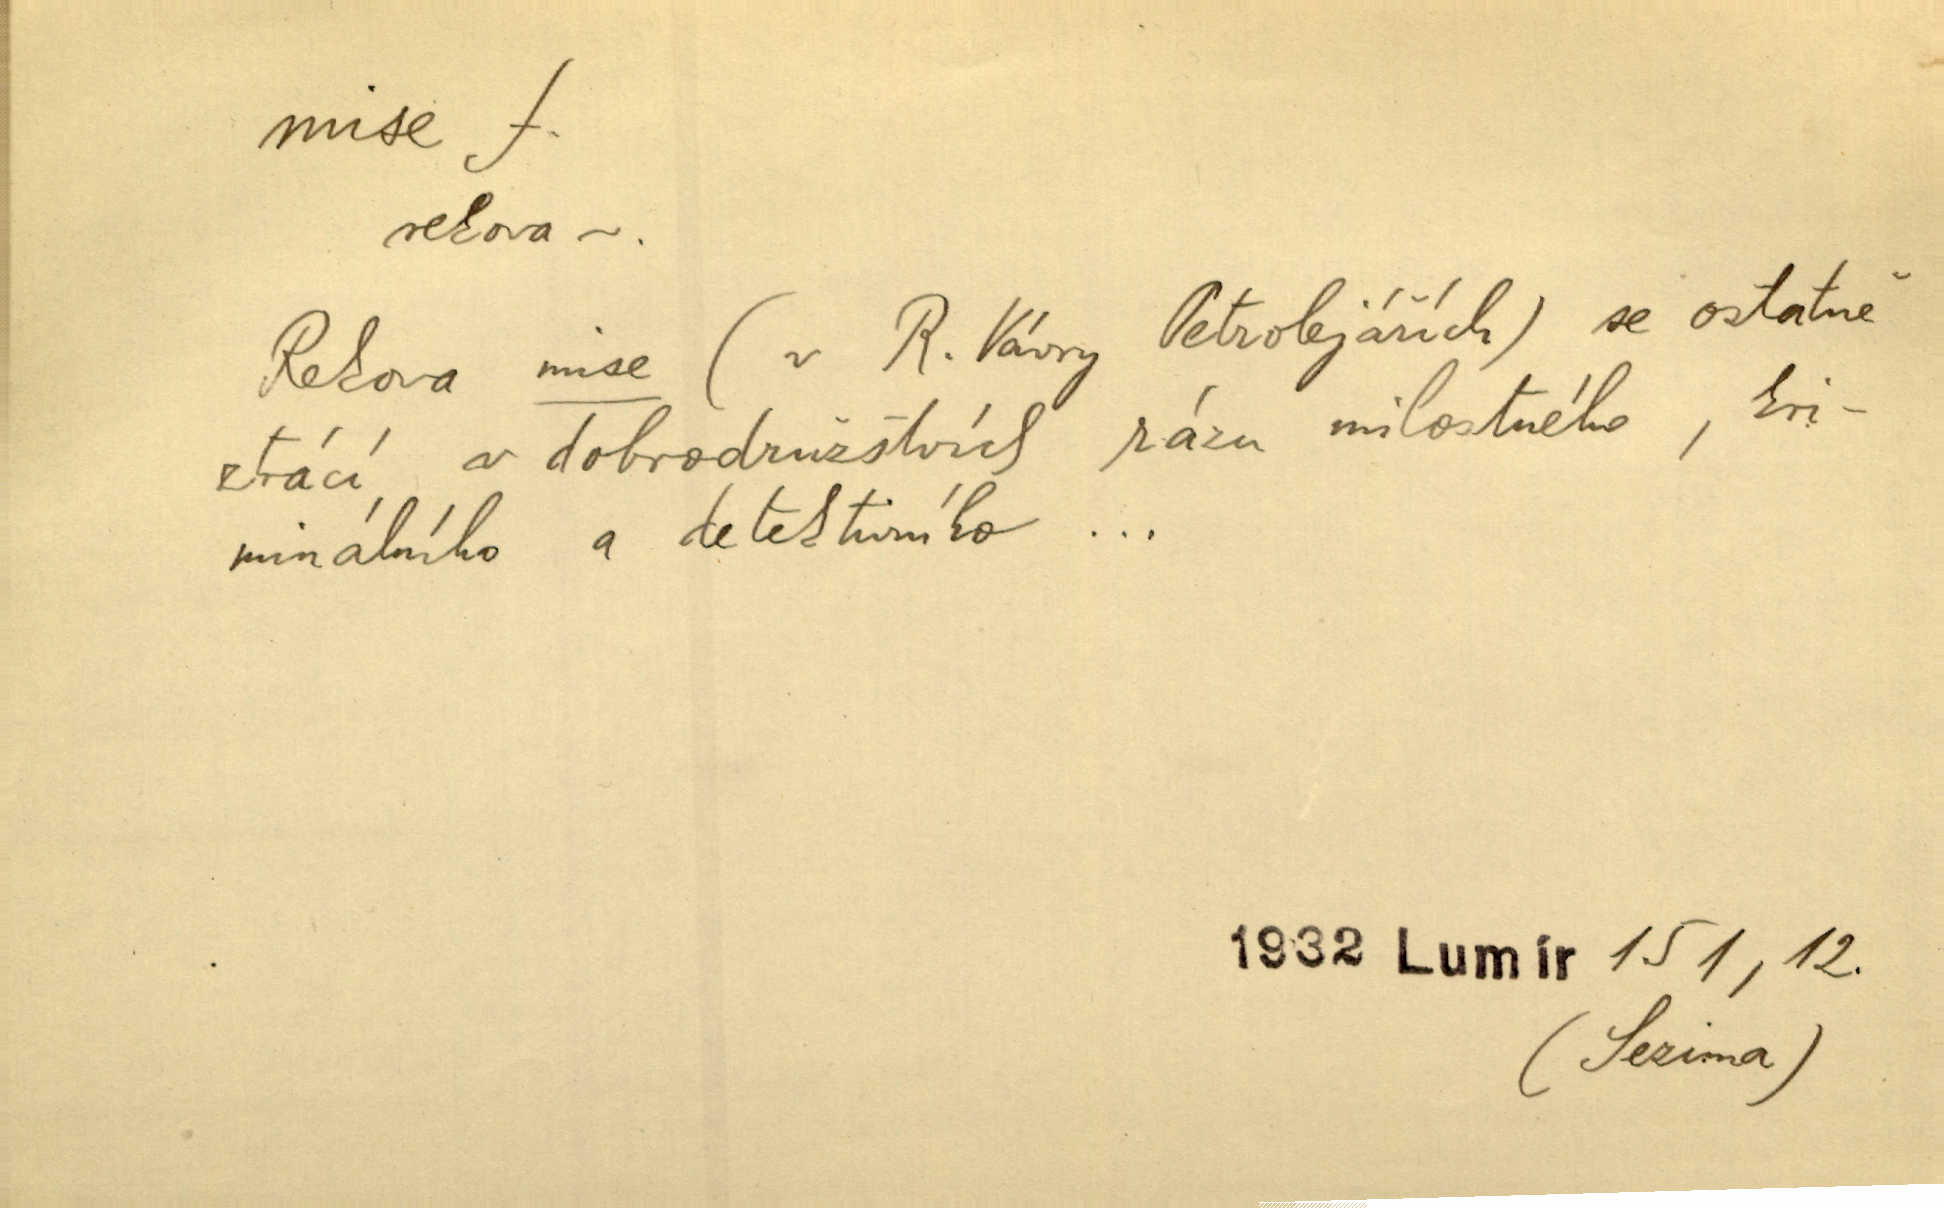 mise f.
rekova ~.
Rekova mise (v R. Vávry Petrolejářích) se ostatně
ztrácí v dobrodružstvích rázu milostného, kri-
minálního a detektivního ...
1932 Lumír 151, 12.
(Sezima)